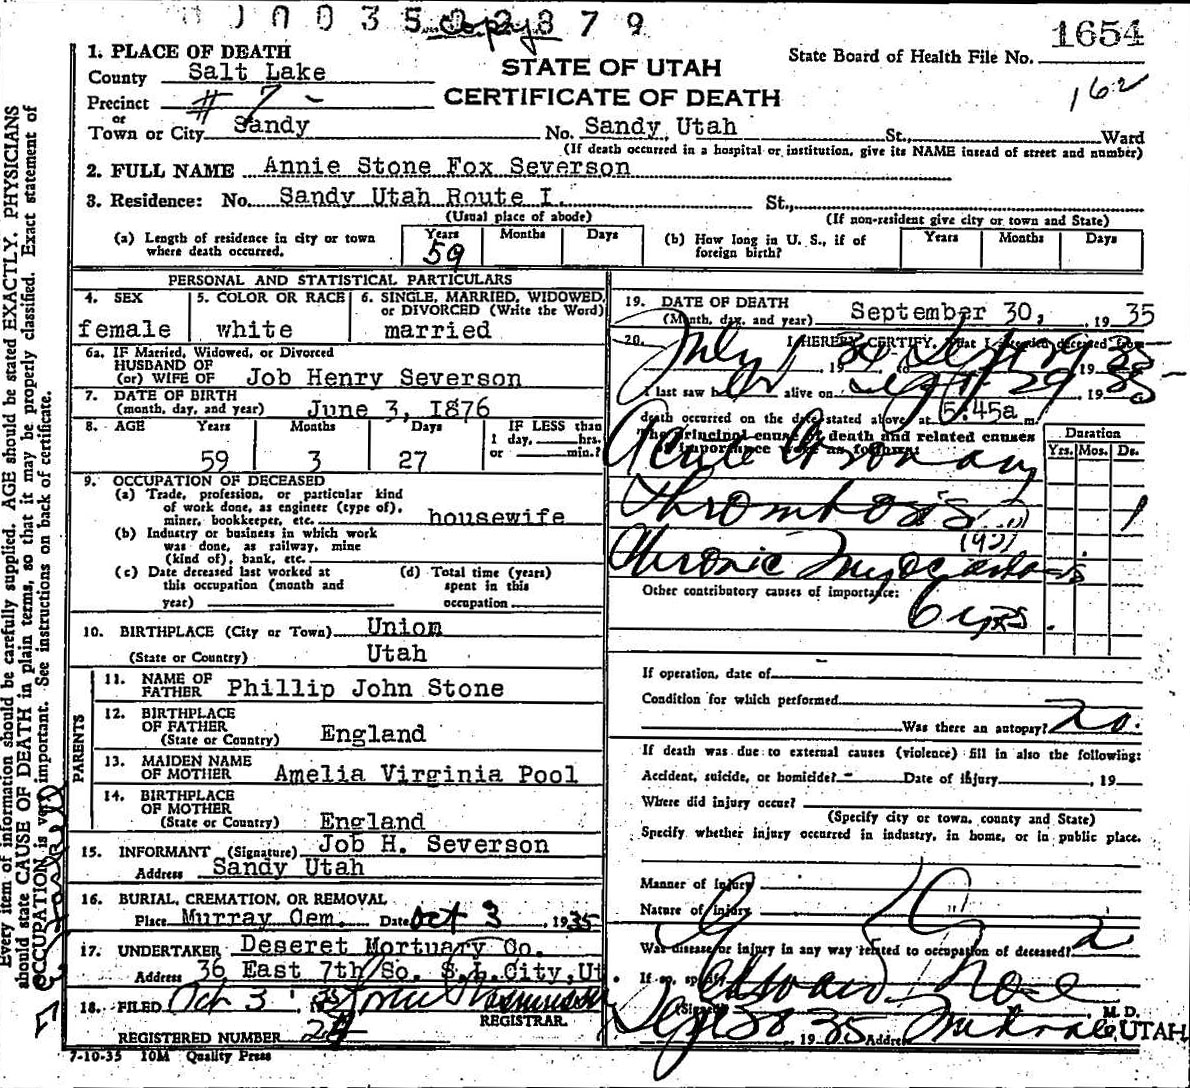 0 0 3 5 2 3 7 9
Copy
1654
1. PLACE OF DEATH
State Board of Health File No.
County Salt Lake
STATE OF UTAH
162
Precinct # 7 -
CERTIFICATE OF DEATH
or
Town or City Sandy No. Sandy Utah St., Ward
(If death occurred in a hospital or institution, give its NAME instead of street and number)
2. FULL NAME Annie Stone Fox Severson
3. Residence: No. Sandy Utah Route I. St.,
(Usual place of abode) (If non-resident give city or town and State)
(a) Length of residence in city or town where death occurred. Years 59 Months Days
(b) How long in U. S., if of foreign birth? Years Months Days
PERSONAL AND STATISTICAL PARTICULARS
4. SEX female
5. COLOR OR RACE white
6. SINGLE, MARRIED, WIDOWED, or DIVORCED (Write the Word) married
6a. IF Married, Widowed, or Divorced
HUSBAND OF
(or) WIFE OF Job Henry Severson
7. DATE OF BIRTH
(month, day, and year) June 3, 1876
8. AGE Years 59 Months 3 Days 27
IF LESS than 1 day, hrs. or min.?
9. OCCUPATION OF DECEASED
(a) Trade, profession, or particular kind
of work done, as engineer (type of),
miner, bookkeeper, etc. housewife
(b) Industry or business in which work
was done, as railway, mine
(kind of), bank, etc.
(c) Date deceased last worked at this occupation (month and year)
(d) Total time (years) spent in this occupation
10. BIRTHPLACE (City or Town) Union
(State or Country) Utah
PARENTS
11. NAME OF FATHER Phillip John Stone
12. BIRTHPLACE OF FATHER
(State or Country) England
13. MAIDEN NAME OF MOTHER Amelia Virginia Pool
14. BIRTHPLACE OF MOTHER
(State or Country) England
15. INFORMANT (Signature) Job H. Severson
Address Sandy Utah
16. BURIAL, CREMATION, OR REMOVAL
Place Murray Cem. Date Oct 3 1935
17. UNDERTAKER Deseret Mortuary Co.
Address 36 East 7th So. S.L.City,Ut
18. FILED Oct 3, 1935
REGISTRAR.
REGISTERED NUMBER
7-10-35 10M Quality Press
19. DATE OF DEATH
(Month, day, and year) September 30, 19 35
20. I HEREBY CERTIFY, That I attended deceased from
July 1 19 34 to Sept 29 19 35
I last saw her alive on Sept 29 19 35
death occurred on the date stated above at 5:45a m.
The principal cause of death and related causes
of importance were as follows:
Duration
Yrs. Mos. Ds.
Acute Coronary
Thrombosis 1
Chronic Myocarditis
Other contributory causes of importance:
6 yrs.
If operation, date of
Condition for which performed
Was there an autopsy? No.
If death was due to external causes (violence) fill in also the following:
Accident, suicide, or homicide? - Date of injury , 19
Where did injury occur?
(Specify city or town, county and State)
Specify whether injury occurred in industry, in home, or in public place.
Manner of injury
Nature of injury
Was disease or injury in any way related to occupation of deceased?
If so, specify
(Signed) M. D.
Sept 30 19 35 Address Midvale, UTAH
Every item of information should be carefully supplied. AGE should be stated EXACTLY. PHYSICIANS
should state CAUSE OF DEATH in plain terms, so that it may be properly classified. Exact statement of
OCCUPATION is very important. See instructions on back of certificate.